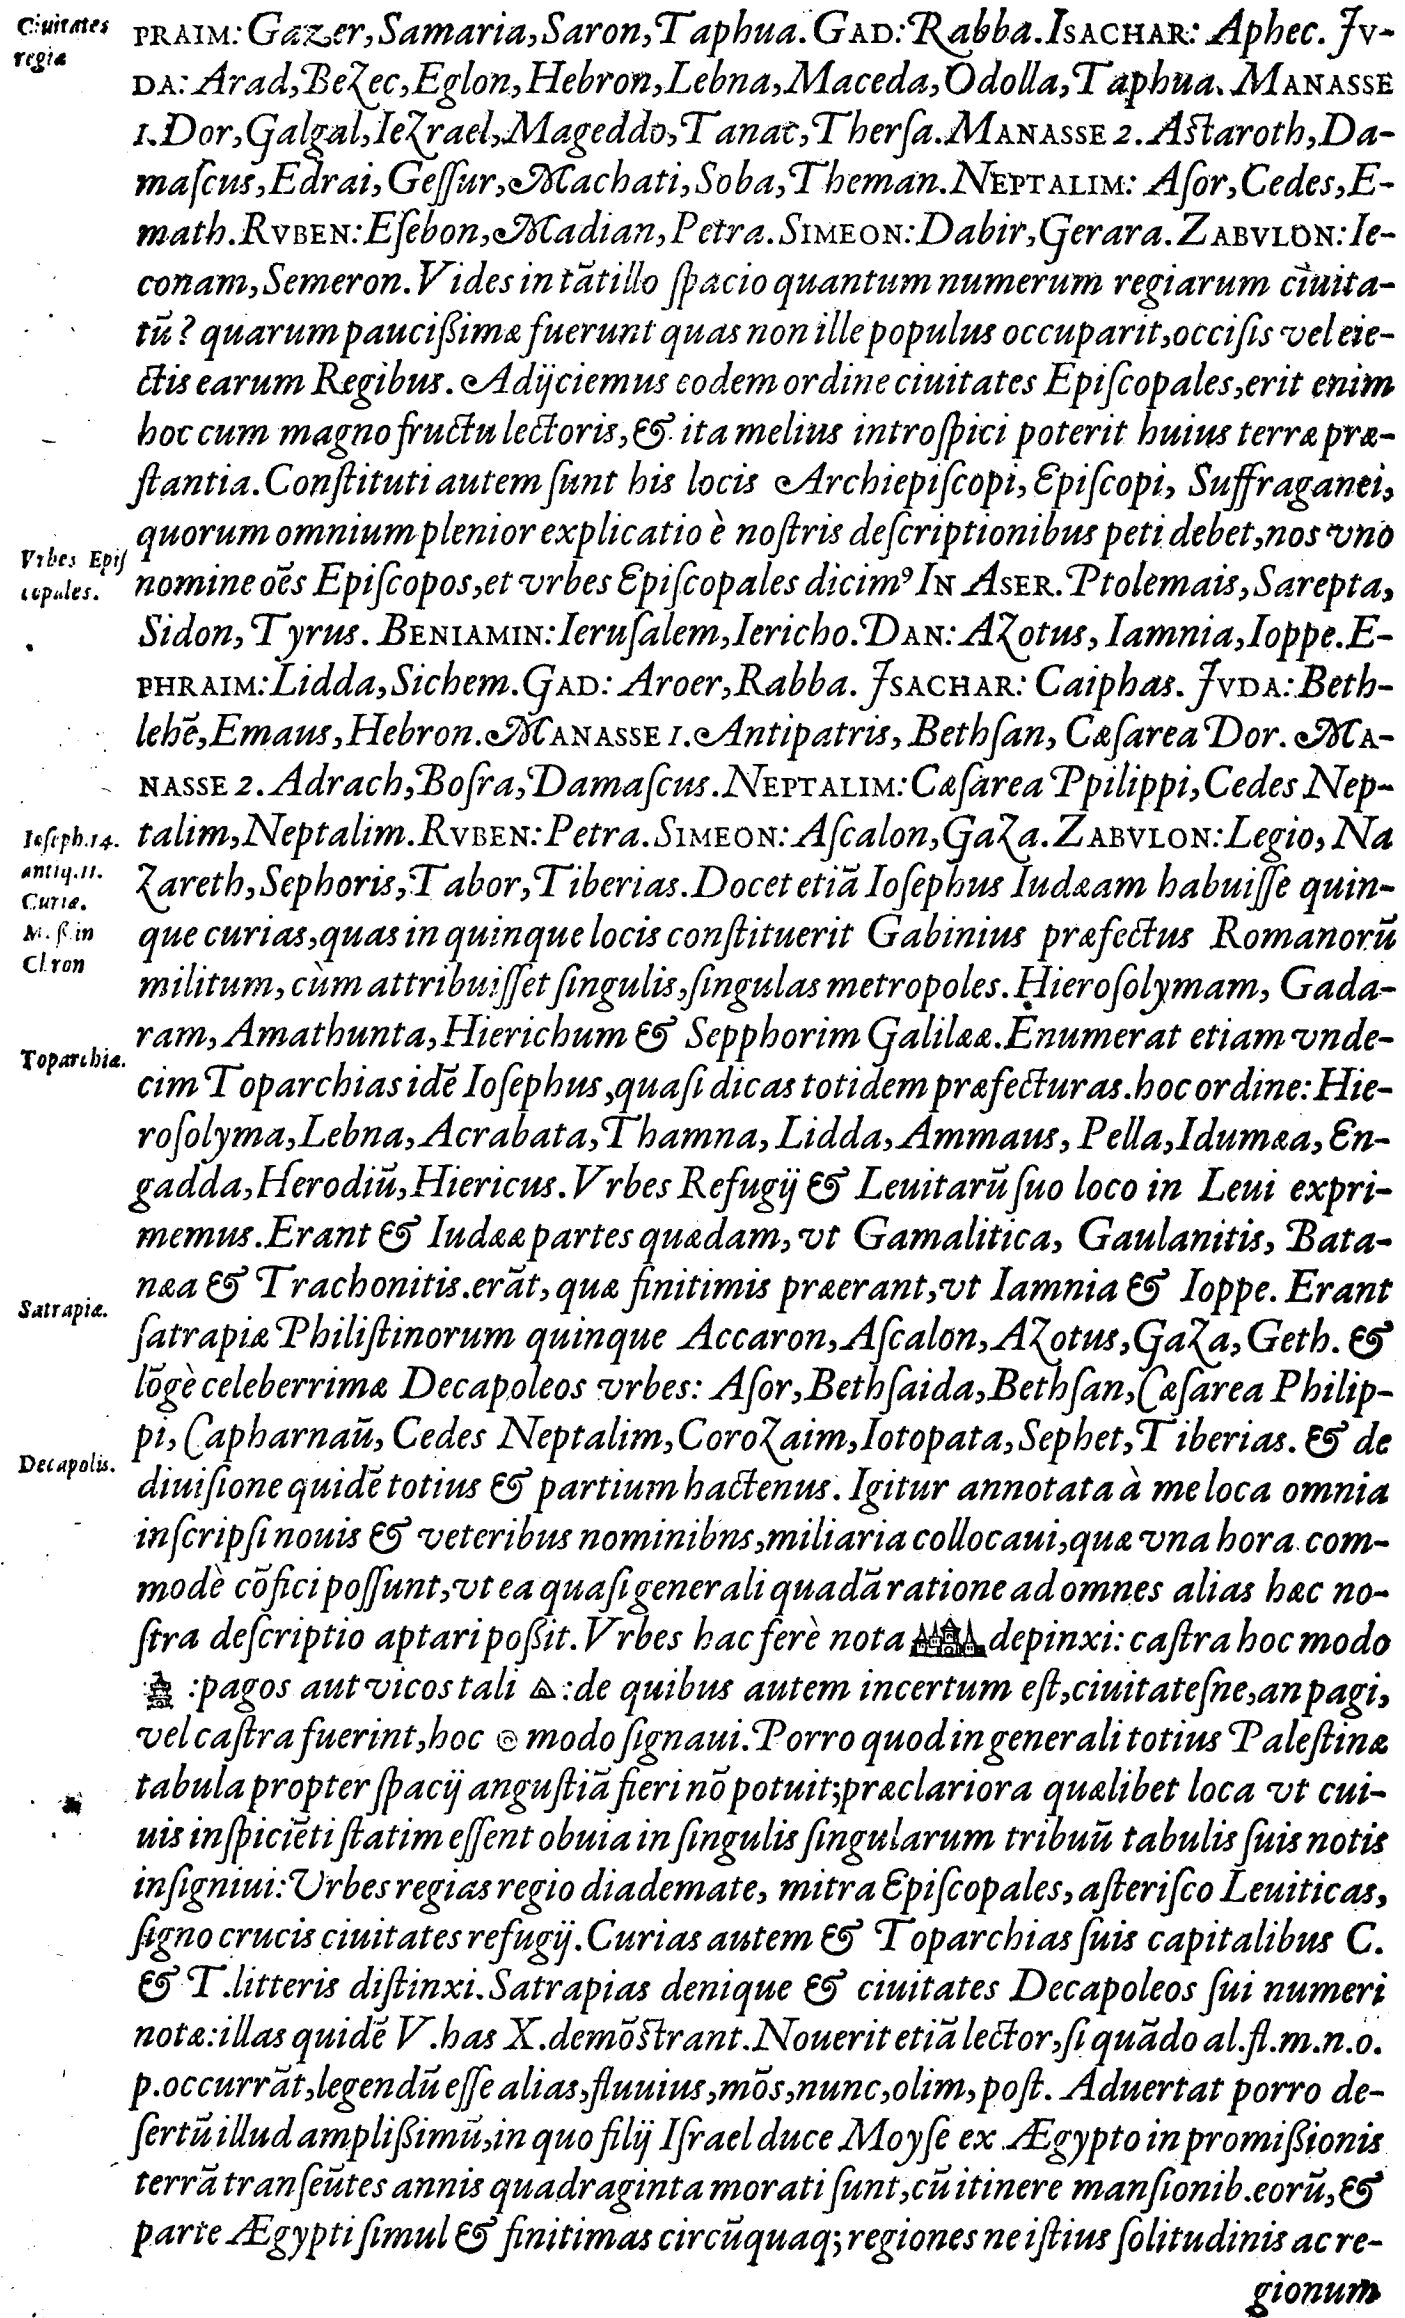 Ciuitates
regiæ
PRAIM: Gazer, Samaria, Saron, Taphua. GAD: Rabba. ISACHAR: Aphec. JV-
DA: Arad, Bezec, Eglon, Hebron, Lebna, Maceda, Odolla, Taphua. MANASSE
1. Dor, Galgal, Iezrael, Mageddo, Tanac, Therſa. MANASSE 2. Aſtaroth, Da-
maſcus, Edrai, Geſſur, Machati, Soba, Theman. NEPTALIM: Aſor, Cedes, E-
math. RVBEN: Eſebon, Madian, Petra. SIMEON: Dabir, Gerara. ZABVLON: Ie-
conam, Semeron. Vides in tãtillo ſpacio quantum numerum regiarum ciuita-
tũ? quarum pauciſsimæ fuerunt quas non ille populus occuparit, occiſis vel eie-
ctis earum Regibus. Adijciemus eodem ordine ciuitates Epiſcopales, erit enim
hoc cum magno fructu lectoris, & ita melius introſpici poterit huius terræ præ-
ſtantia. Conſtituti autem ſunt his locis Archiepiſcopi, Epiſcopi, Suffraganei,
quorum omnium plenior explicatio è noſtris deſcriptionibus peti debet, nos vno
Vrbes Epiſ
copales.
nomine oẽs Epiſcopos, et vrbes Epiſcopales dicimꝰ IN ASER. Ptolemais, Sarepta,
Sidon, Tyrus. BENIAMIN: Ieruſalem, Iericho. DAN: Azotus, Iamnia, Ioppe. E-
PHRAIM: Lidda, Sichem. GAD: Aroer, Rabba. JSACHAR: Caiphas. JVDA: Beth-
lehẽ, Emaus, Hebron. MANASSE 1. Antipatris, Bethſan, Cæſarea Dor. MA-
NASSE 2. Adrach, Boſra, Damaſcus. NEPTALIM: Cæſarea Ppilippi, Cedes Nep-
Ioſeph. 14.
antiq. 11.
Curiæ.
talim, Neptalim. RVBEN: Petra. SIMEON: Aſcalon, Gaza. ZABVLON: Legio, Na
zareth, Sephoris, Tabor, Tiberias. Docet etiã Ioſephus Iudæam habuiſſe quin-
que curias, quas in quinque locis conſtituerit Gabinius præfectus Romanorũ
militum, cùm attribuiſſet ſingulis, ſingulas metropoles. Hieroſolymam, Gada-
ram, Amathunta, Hierichum & Sepphorim Galilææ. Enumerat etiam vnde-
Toparchiæ.
cim Toparchias idẽ Ioſephus, quaſi dicas totidem præfecturas. hoc ordine: Hie-
roſolyma, Lebna, Acrabata, Thamna, Lidda, Ammaus, Pella, Idumæa, En-
gadda, Herodiũ, Hiericus. Vrbes Refugij & Leuitarũ ſuo loco in Leui expri-
memus. Erant & Iudææ partes quædam, vt Gamalitica, Gaulanitis, Bata-
næa & Trachonitis. erãt, quæ finitimis præerant, vt Iamnia & Ioppe. Erant
Satrapiæ.
ſatrapiæ Philiſtinorum quinque Accaron, Aſcalon, Azotus, Gaza, Geth. &
lõgè celeberrimæ Decapoleos vrbes: Aſor, Bethſaida, Bethſan, Cæſarea Philip-
pi, Capharnaũ, Cedes Neptalim, Corozaim, Iotopata, Sephet, Tiberias. & de
Decapolis.
diuiſione quidẽ totius & partium hactenus. Igitur annotata à me loca omnia
inſcripſi nouis & veteribus nominibns, miliaria collocaui, quæ vna hora com-
modè cõfici poſſunt, vt ea quaſi generali quadã ratione ad omnes alias hæc no-
ſtra deſcriptio aptari poſsit. Vrbes hac ferè nota depinxi: caſtra hoc modo
: pagos aut vicos tali : de quibus autem incertum eſt, ciuitateſne, an pagi,
vel caſtra fuerint, hoc modo ſignaui. Porro quod in generali totius Paleſtinæ
tabula propter ſpacij anguſtiã fieri nõ potuit; præclariora quælibet loca vt cui-
uis inſpiciẽti ſtatim eſſent obuia in ſingulis ſingularum tribuũ tabulis ſuis notis
inſigniui: Vrbes regias regio diademate, mitra Epiſcopales, aſteriſco Leuiticas,
ſigno crucis ciuitates refugij. Curias autem & Toparchias ſuis capitalibus C.
& T. litteris diſtinxi. Satrapias denique & ciuitates Decapoleos ſui numeri
notæ: illas quidẽ V. has X. demõſtrant. Nouerit etiã lector, ſi quãdo al. fl. m. n. o.
p. occurrãt, legendũ eſſe alias, fluuius, mõs, nunc, olim, poſt. Aduertat porro de-
ſertũ illud ampliſsimũ, in quo filij Iſrael duce Moyſe ex Ægypto in promiſsionis
terrã tranſeũtes annis quadraginta morati ſunt, cũ itinere manſionib. eorũ, &
parte Ægypti ſimul & finitimas circũquaq; regiones ne iſtius ſolitudinis ac re-
gionum